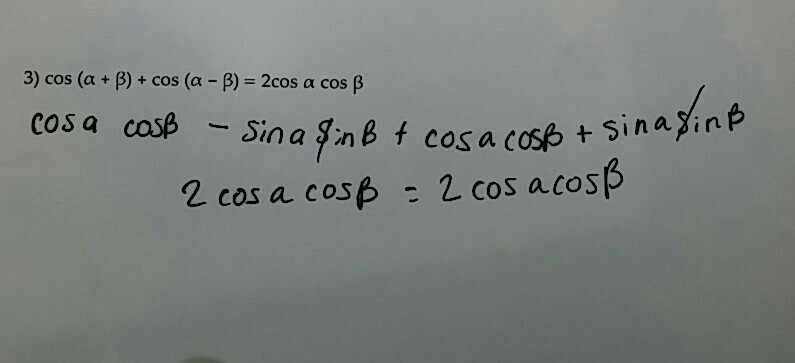 3) cos (α + β) + cos (α – β) = 2cos α cos β
cos a cosβ - sin a sin β + cos a cosβ + sin a sin β
2 cos a cosβ = 2 cos a cosβ